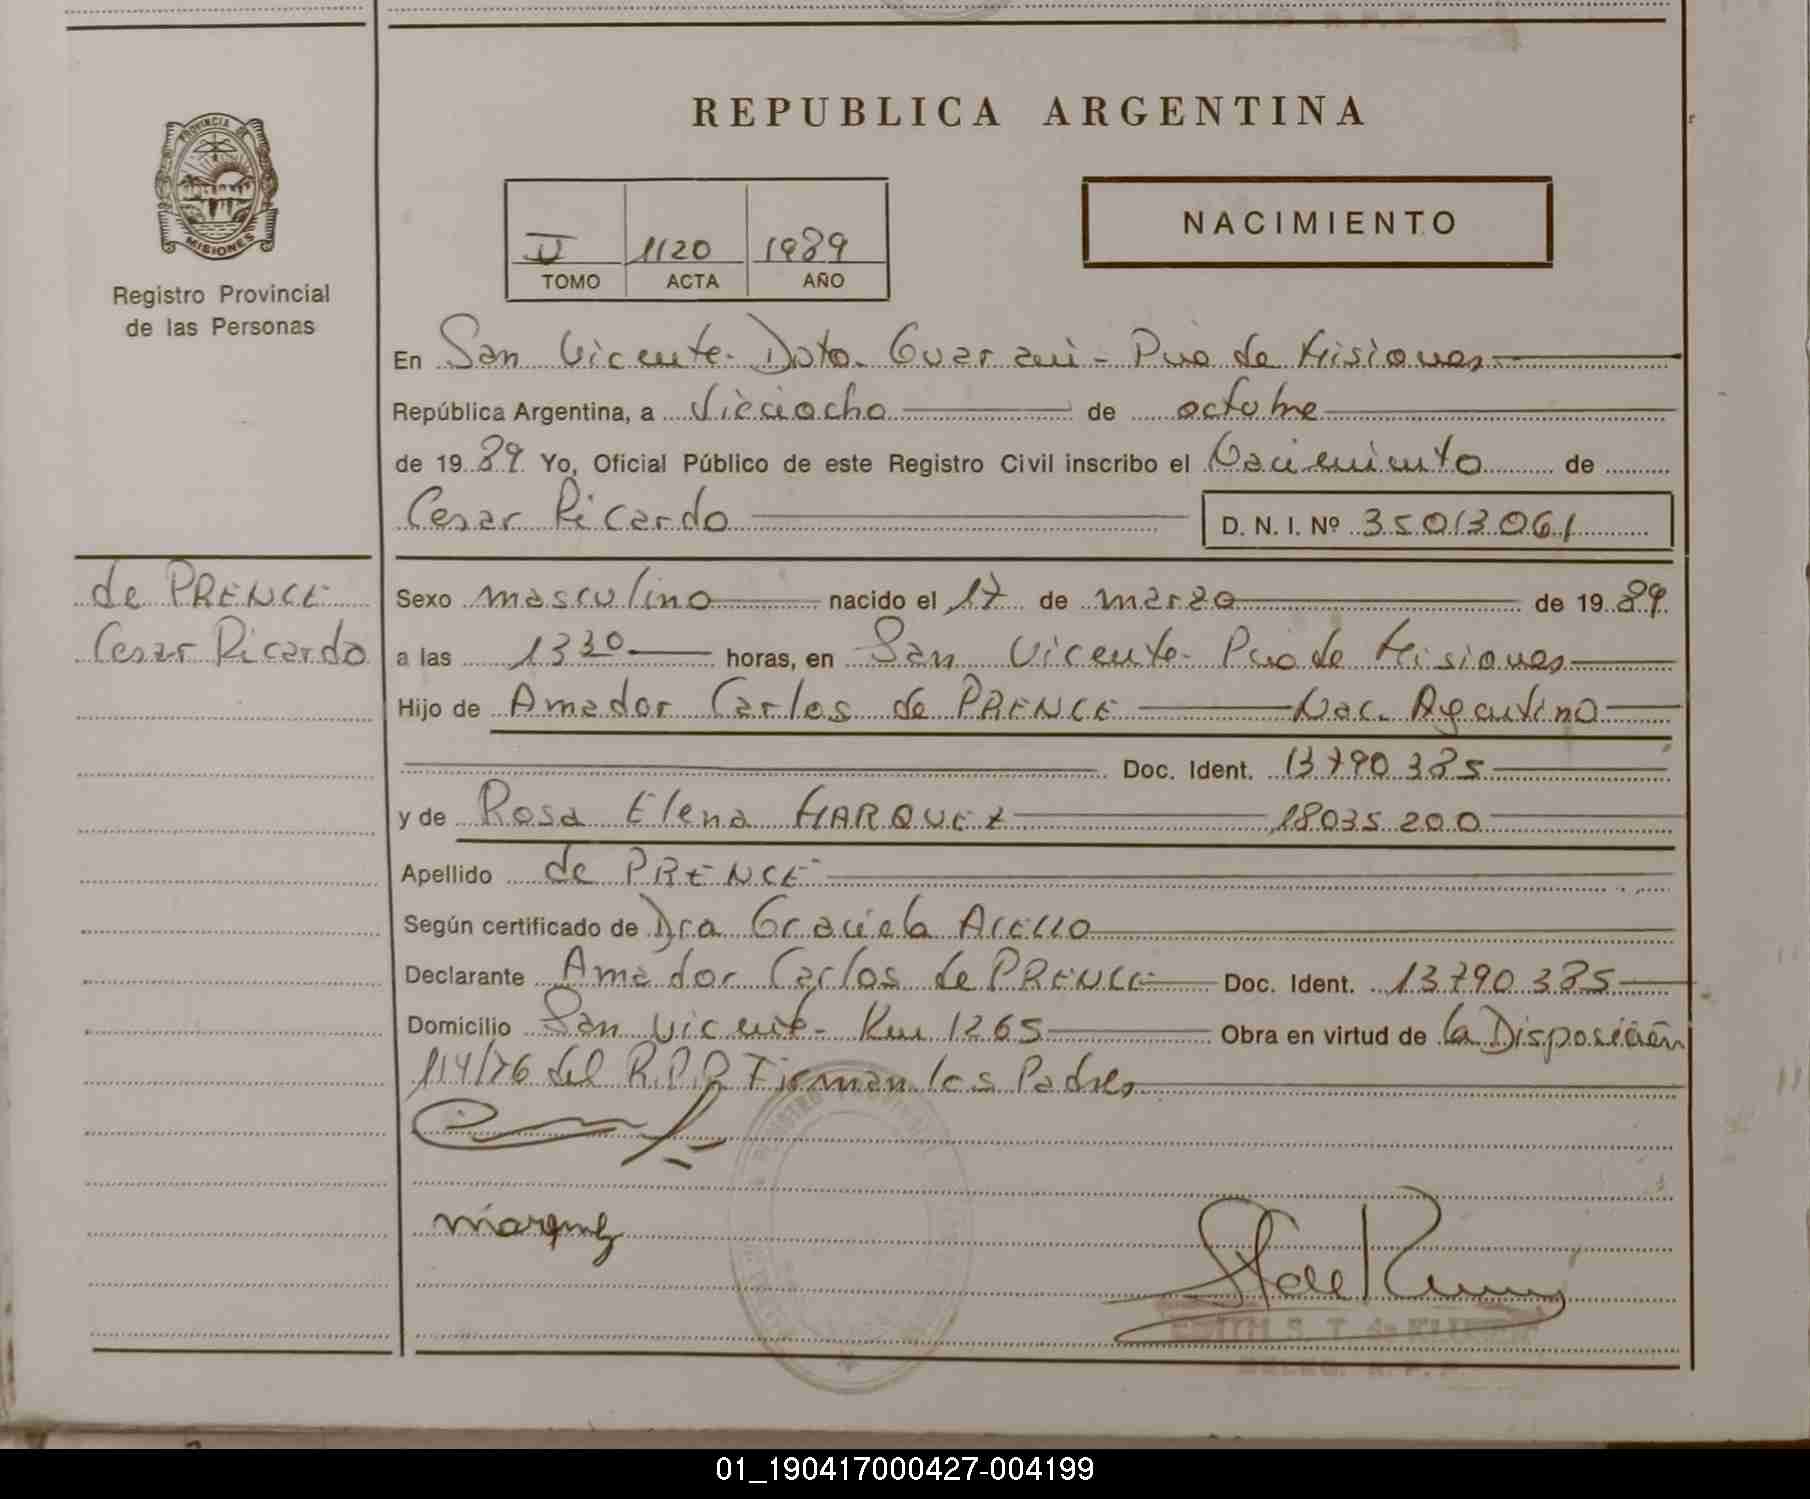 REPUBLICA ARGENTINA
PROVINCIA DE
MISIONES
Registro Provincial
de las Personas
II 1120 1989
TOMO ACTA AÑO
NACIMIENTO
En San Vicente - Dpto. Guarani - Pcia de Misiones
República Argentina, a dieciocho de octubre
de 1989 Yo, Oficial Público de este Registro Civil inscribo el Nacimiento de
Cesar Ricardo D. N. I. Nº 35013061
de PRENCE
Cesar Ricardo
Sexo masculino nacido el 17 de marzo de 1989
a las 13 30 horas, en San Vicente - Pcia de Misiones
Hijo de Amador Carlos de PRENCE Nac. Argentino
Doc. Ident. 13790385
y de Rosa Elena MARQUEZ 18035200
Apellido de PRENCE
Según certificado de Dra Graciela
Declarante Amador Carlos de PRENCE Doc. Ident. 13790385
Domicilio San Vicente - Km 1265 Obra en virtud de la Disposición
114/76 del R.P.P. Firman los Padres
marquez
EDITH S. T. de
DELEG. R. P. P.
01_190417000427-004199